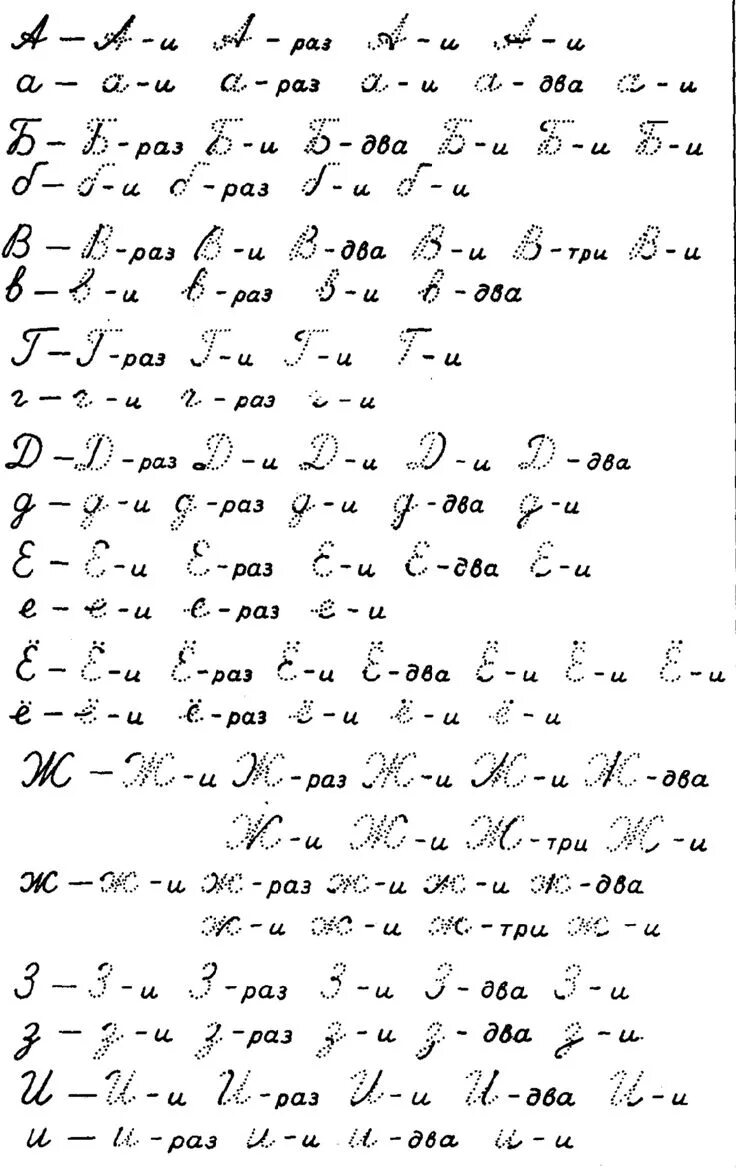 А — А - и А - раз А - и А - и
а — а - и а - раз а - и а - два а - и
Б — Б - раз Б - и Б - два Б - и Б - и Б - и
б — б - и б - раз б - и б - и
В — В - раз В - и В - два В - и В - три В - и
в — в - и в - раз в - и в - два
Г — Г - раз Г - и Г - и Г - и
г — г - и г - раз г - и
Д — Д - раз Д - и Д - и Д - и Д - два
д — д - и д - раз д - и д - два д - и
Е — Е - и Е - раз Е - и Е - два Е - и
е — е - и е - раз е - и
Ё — Ё - и Ё - раз Ё - и Ё - два Ё - и Ё - и Ё - и
ё — ё - и ё - раз ё - и ё - и ё - и
Ж — Ж - и Ж - раз Ж - и Ж - и Ж - два
Ж - и Ж - и Ж - три Ж - и
ж — ж - и ж - раз ж - и ж - и ж - два
ж - и ж - и ж - три ж - и
З — З - и З - раз З - и З - два З - и
з — з - и з - раз з - и з - два з - и
И — И - и И - раз И - и И - два И - и
и — и - раз и - и и - два и - и